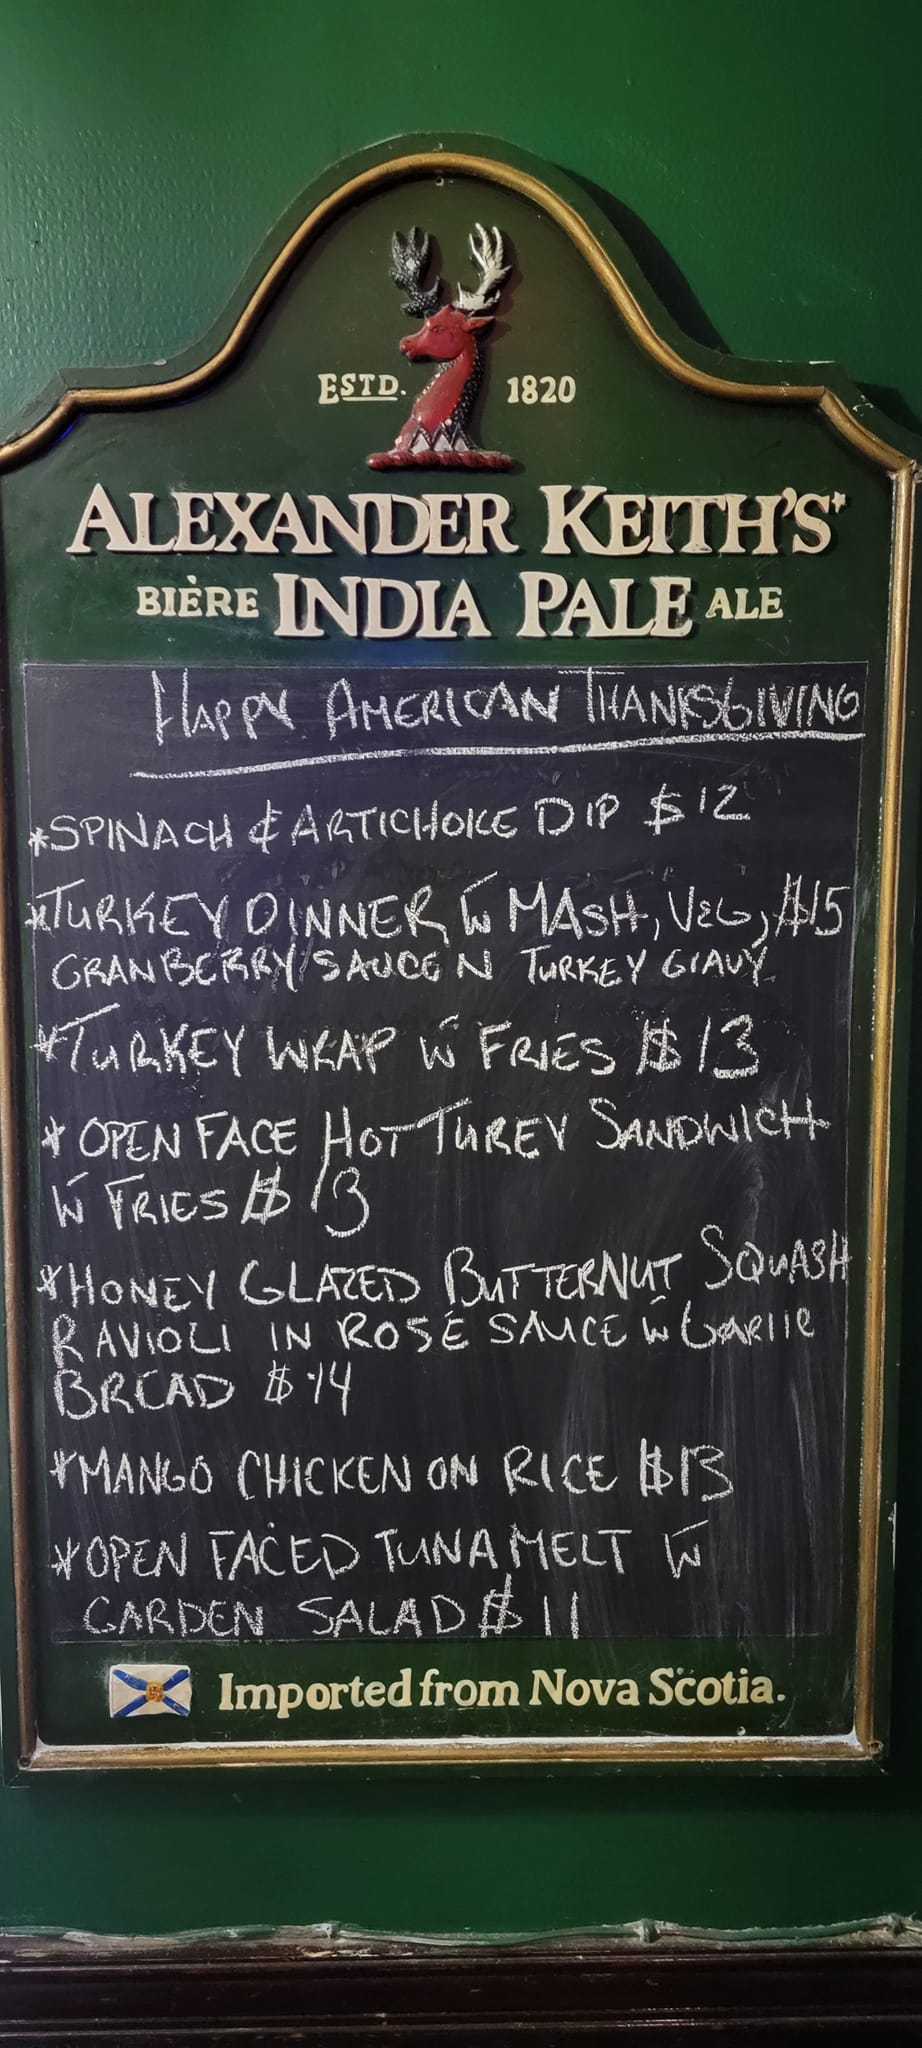 ESTD. 1820
ALEXANDER KEITH'S*
BIÈRE INDIA PALE ALE
HAPPY AMERICAN THANKSGIVING
*SPINACH & ARTICHOKE DIP $12
*TURKEY DINNER W MASH, VEG, $15
CRANBERRY SAUCE N TURKEY GRAVY
*TURKEY WRAP W FRIES $13
* OPEN FACE HOT TUREY SANDWICH
W FRIES $13
*HONEY GLAZED BUTTERNUT SQUASH
RAVIOLI IN ROSÉ SAUCE W GARLIC
BREAD $14
*MANGO CHICKEN ON RICE $13
*OPEN FACED TUNA MELT W
GARDEN SALAD $11
Imported from Nova Scotia.